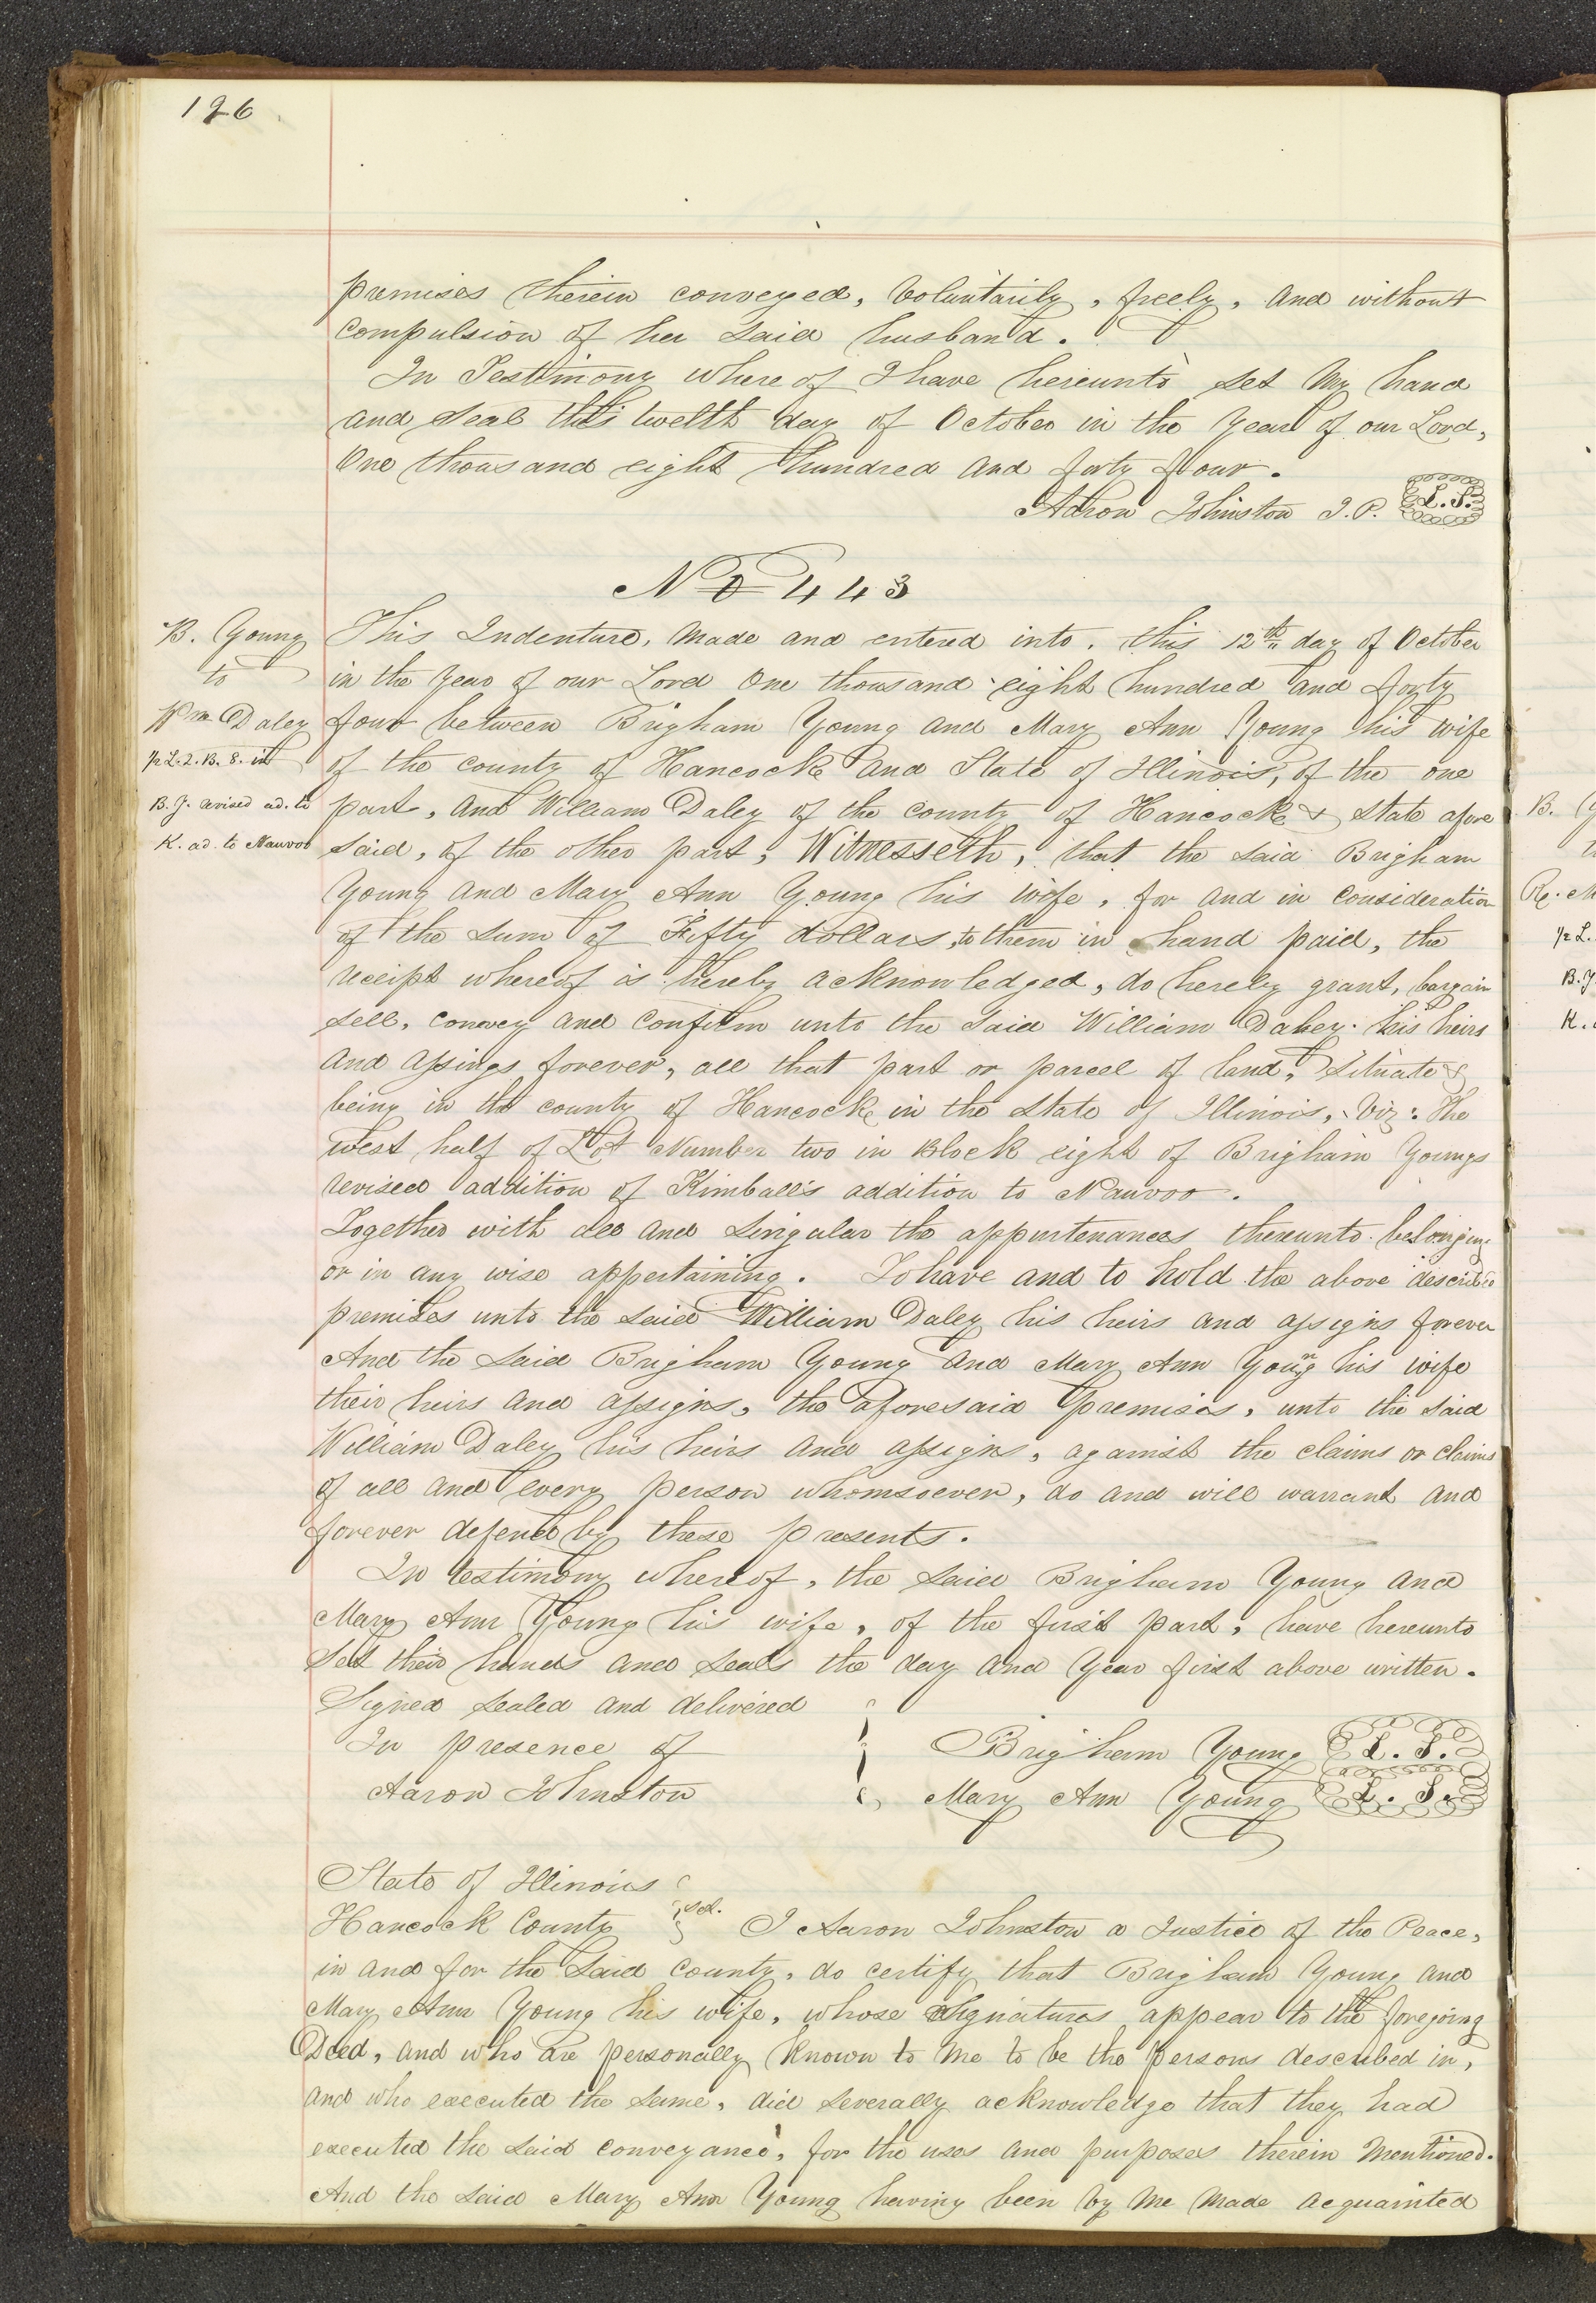 126
premises therein conveyed, Voluntarily, freely, and without
compulsion of her said husband.
In Testimony where of I have hereunto set my hand
and seal this twelth day of October in the Year of our Lord,
One thousand eight hundred and forty four.
Aaron Johnston J.P. L.S.
No 443
B. Young
to
Wm Daley
½ L. 2. B. 8. in
B. Y. revised ad. to
K. ad. to Nauvoo
This Indenture, made and entered into, this 12th day of October
in the Year of our Lord One thousand eight hundred and forty
four between Brigham Young and Mary Ann Young his wife
of the county of Hancock and State of Illinois, of the one
part, and William Daley of the county of Hancock & State afore
said, of the other part, Witnesseth, that the said Brigham
Young and Mary Ann Young his wife, for and in consideration
of the sum of Fifty dollars, to them in hand paid, the
receipt whereof is hereby acknowledged, do hereby grant, bargain
sell, convey and confirm unto the said William Daley his heirs
and assings forever, all that part or parcel of land, Situate &
being in the county of Hancock in the State of Illinois, Viz: The
west half of Lot Number two in Block eight of Brigham Youngs
revised addition of Kimball's addition to Nauvoo.
Together with all and singular the appurtenances thereunto belonging
or in any wise appertaining. To have and to hold the above described
premises unto the said William Daley his heirs and assigns forever
And the said Brigham Young and Mary Ann Young his wife
their heirs and assigns, the aforesaid premises, unto the said
William Daley his heirs and assigns, against the claims or claims
of all and every person whomsoever, do and will warrant and
forever defend by these presents.
In testimony whereof, the said Brigham Young and
Mary Ann Young his wife, of the first part, have hereunto
set their hands and seals the day and Year first above written.
Signed sealed and delivered
In presence of
Aaron Johnston
Brigham Young L. S.
Mary Ann Young L. S.
State of Illinois
Hancock County sct. I Aaron Johnston a Justice of the Peace,
in and for the said county, do certify that Brigham Young and
Mary Ann Young his wife, whose signatures appear to the foregoing
Deed, and who are personally known to me to be the persons described in,
and who executed the same, did severally acknowledge that they had
executed the said conveyance, for the uses and purposes therein mentioned.
And the said Mary Ann Young having been by me made acquainted
B.
½ L.
B. Y
K.